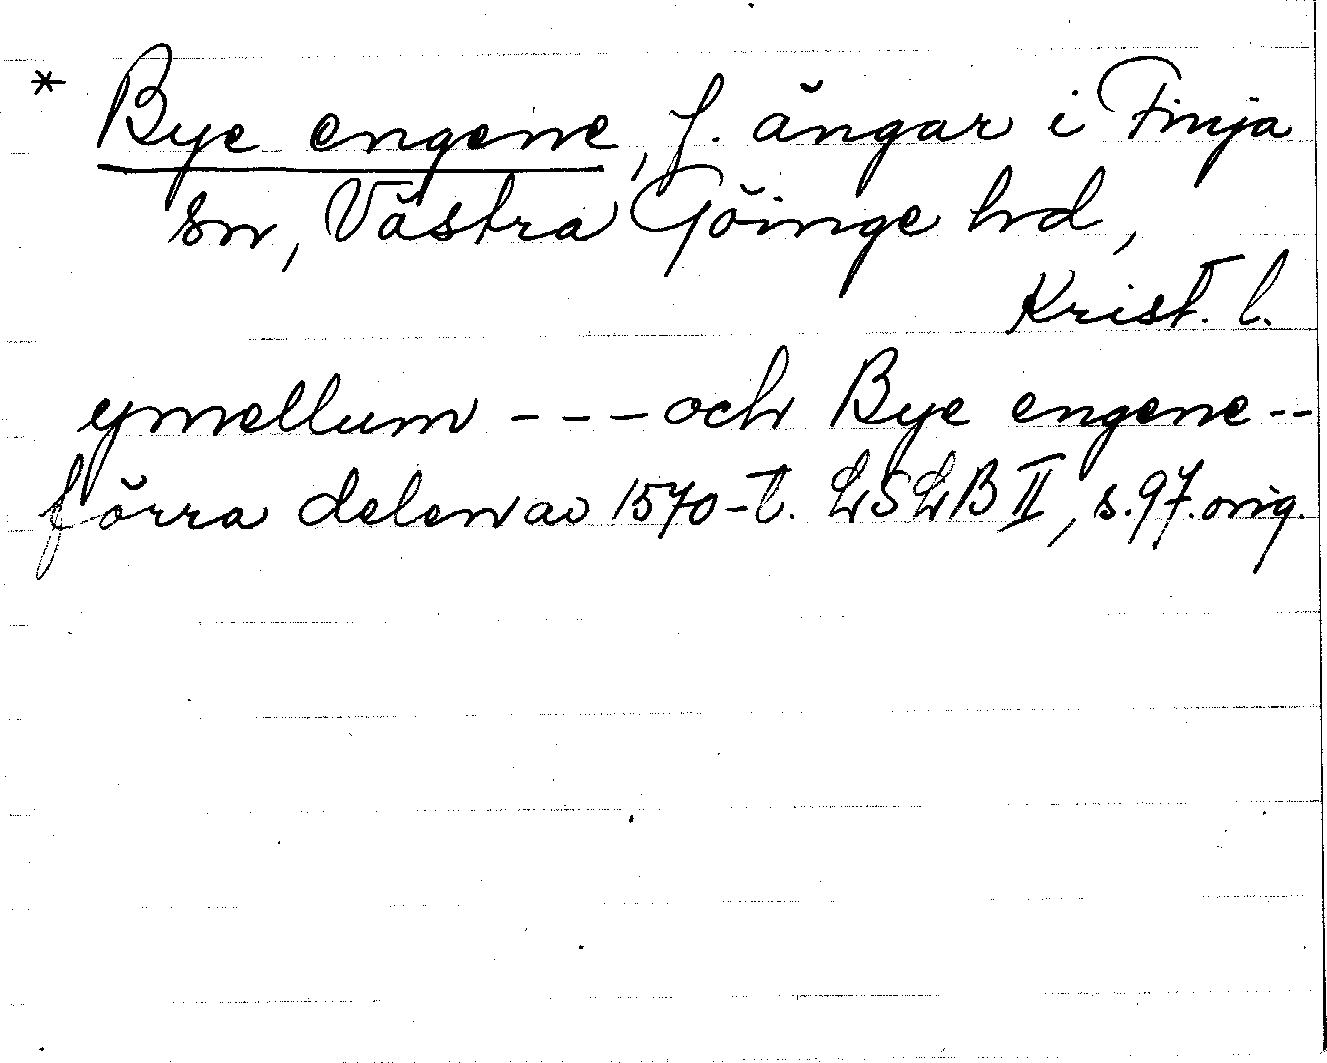 * Bye engene, f. ängar i Finja
sn, Västra Göinge hd,
Krist. l.
ymellum - - - och Bye engene --
förra delen av 1570-t. LSLB II, s. 97. orig.